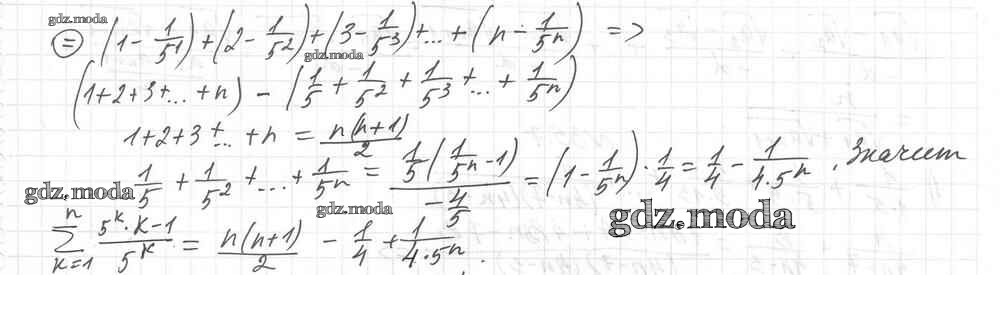 gdz.moda
⊜ (1 - 1/5¹) + (2 - 1/5²) + (3 - 1/5³) + ... + (n - 1/5ⁿ) =>
gdz.moda
(1+2+3+...+n) - (1/5 + 1/5² + 1/5³ + ... + 1/5ⁿ)
1+2+3+...+n = n(n+1)/2
1/5 + 1/5² + ... + 1/5ⁿ = (1/5(1/5ⁿ - 1))/(-4/5) = (1 - 1/5ⁿ)·1/4 = 1/4 - 1/(4·5ⁿ), Значит
gdz.moda gdz.moda gdz.moda
∑ⁿₖ₌₁ (5ᵏ·k-1)/5ᵏ = n(n+1)/2 - 1/4 + 1/(4·5ⁿ).